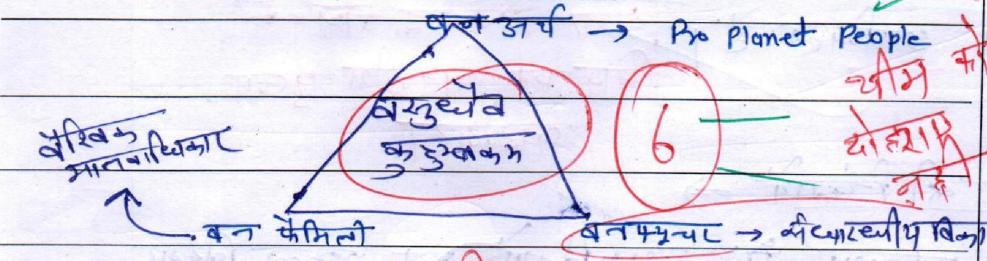 वन अर्थ → Pro Planet People
थीम को
वसुधैव
कुटुम्बकम
6
दोहराए
नहीं
वैश्विक
मानवाधिकार
वन फैमिली
वनफ्यूचर →